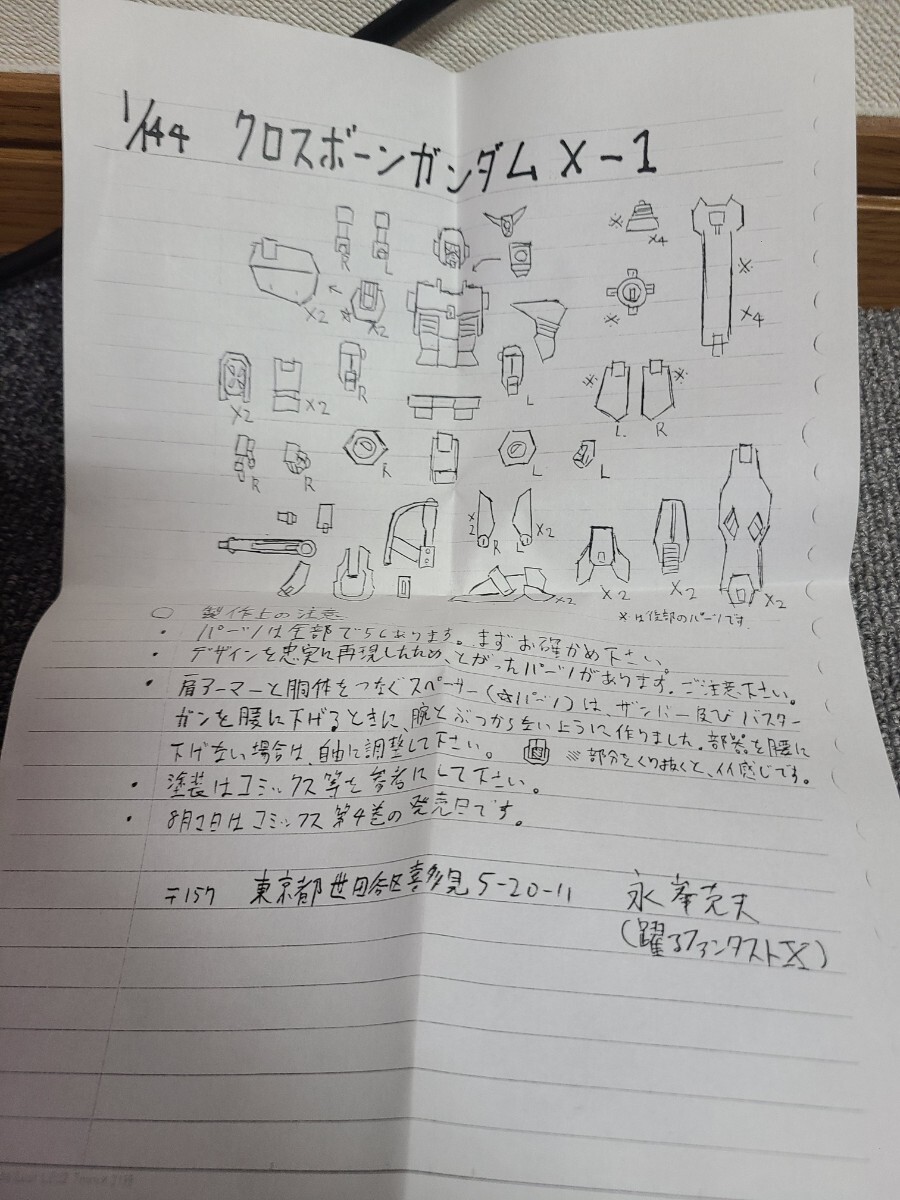 1/144 クロスボーンガンダム X-1
R L
※ ×4
×2 ☆ ×2 ※ ※ ×4
×2 ×2 R L ※ ※
L R
R R R L L
×2 R L ×2 ×2 ×2 ×2
×2
○ 製作上の注意 ※は他部のパーツです
・パーツは全部で56あります。まずお確かめ下さい。
・デザインを忠実に再現したため、とがったパーツがあります。ご注意下さい。
・肩アーマーと胴体をつなぐスペーサー(☆パーツ)は、ザンバー及びバスター
ガンを腰に下げるときに、腕とぶつからないように作りました。部器を腰に
下げない場合は、自由に調整して下さい。 ※部分をくり抜くと、イイ感じです。
・塗装はコミックス等を参考にして下さい。
・8月2日はコミックス第4巻の発売日です。
〒157 東京都世田谷区喜多見5-20-11
(躍るファンタストX)